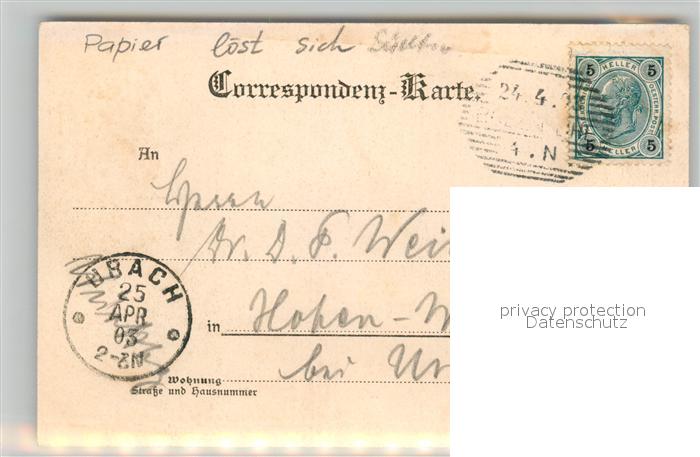 Papier löst sich
Correspondenz-Karte.
24.4.
4.N
5 HELLER 5
OESTERR. POST
5 HELLER 5
An
Herrn
Dr. D. F.
URACH
25
APR
03
2-3N
in Hohen-
bei Ur
Wohnung
Straße und Hausnummer
privacy protection
Datenschutz